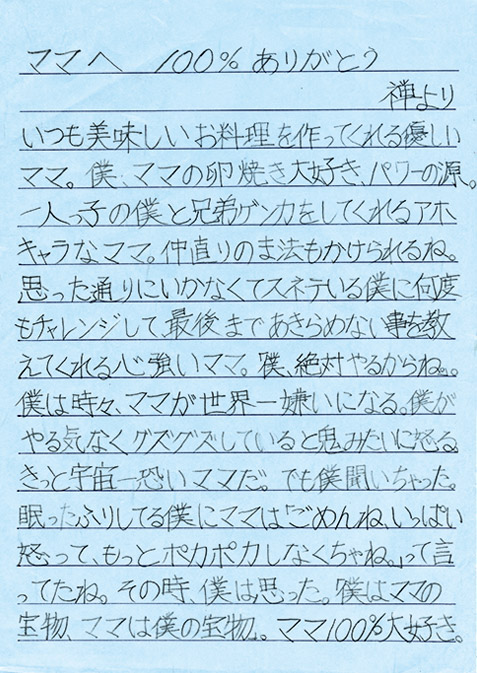 ママへ 100%ありがとう
禅より
いつも美味しいお料理を作ってくれる優しい
ママ。僕、ママの卵焼き大好き、パワーの源。
一人っ子の僕と兄弟ゲンカをしてくれるアホ
キャラなママ。仲直りのま法もかけられるね。
思った通りにいかなくてスネテいる僕に何度
もチャレンジして、最後まであきらめない事を教
えてくれる心強いママ。僕、絶対やるからね。
僕は時々、ママが世界一嫌いになる。僕が
やる気なくグズグズしていると鬼みたいに怒る。
きっと宇宙一恐いママだ。でも僕聞いちゃった。
眠ったふりしてる僕にママは「ごめんね、いっぱい
怒って、もっとポカポカしなくちゃね。」って言
ってたね。その時、僕は思った。僕はママの
宝物、ママは僕の宝物。ママ100%大好き。